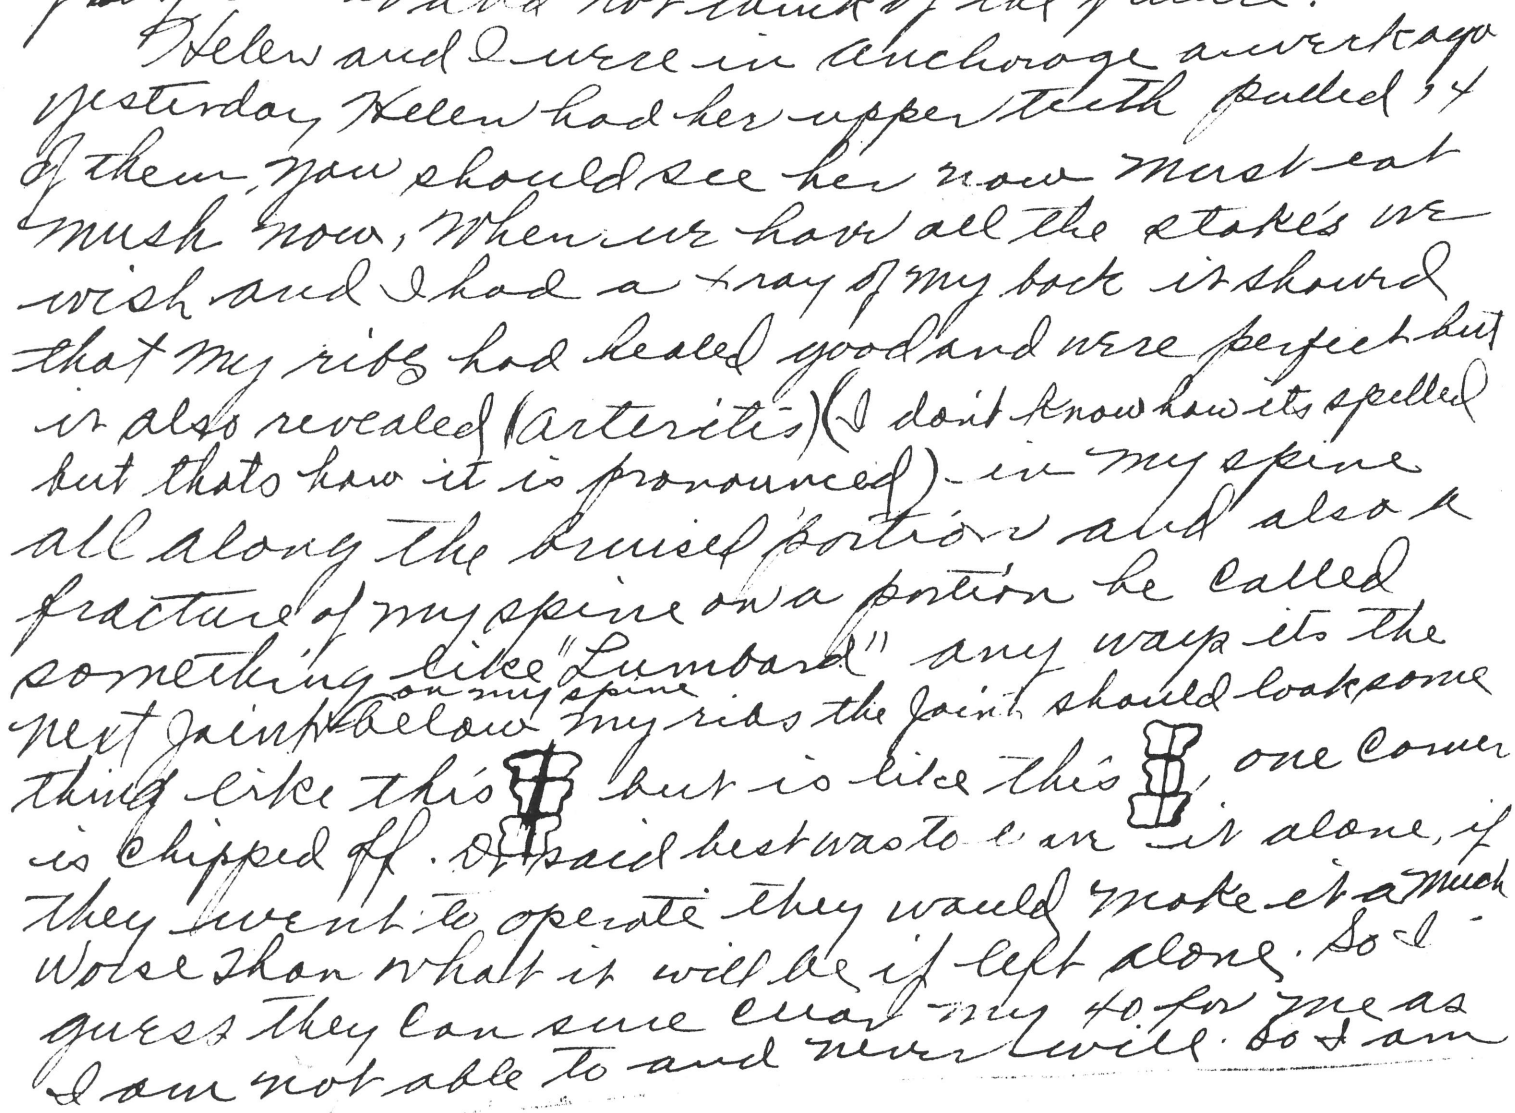 not think of the future.
Helen and I were in Anchorage a week ago
yesterday Helen had her upper teeth pulled 14
of them, you should see her now must eat
mush now, When we have all the stake's we
wish and I had a xray of my back it showed
that my ribs had healed good and were perfect but
it also revealed (arteritis) (I don't know how its spelled
but thats how it is pronounced) in my spine
all along the bruised portion and also a
fracture of my spine on a portion he called
something like "Lumbard" any ways its the
on my spine
next joint below my ribs the joint should look some
thing like this but is like this, one corner
is chipped off. Dr said best was to leave it alone, if
they went to operate they would make it a much
worse than what it will be if left alone. So I
guess they can sure clear my 40 for me as
I am not able to and never will. So I am